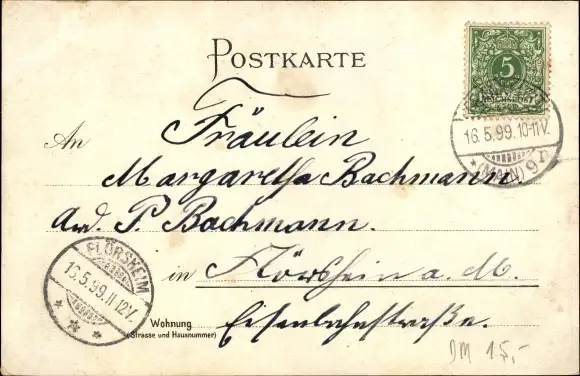 POSTKARTE
5
REICHSPOST
16.5.99.10-11V.
* (MAIN) 9 n
An Fräulein
Margaretha Bachmann.
P. Bachmann.
FLÖRSHEIM
16.5.99.11-12V.
in Flörsheim a. M.
Wohnung
(Strasse und Hausnummer)
Eisenbahnstraße.
DM 15,-